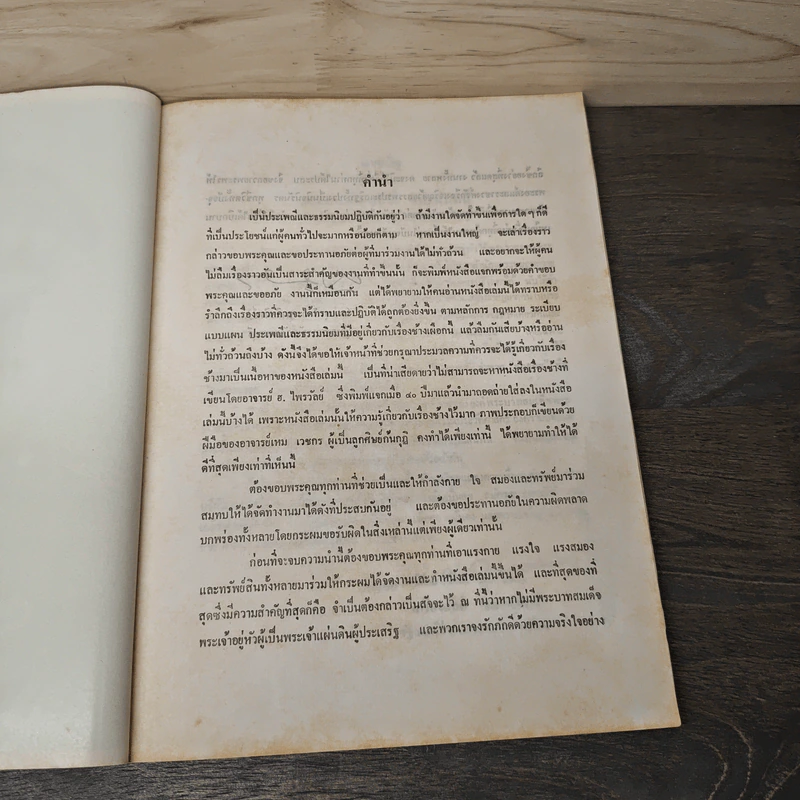 คำนำ
เป็นประเพณีและธรรมนิยมปฏิบัติกันอยู่ว่า ถ้ามีงานใดจัดทำขึ้นเพื่อการใดๆ ก็ดี
ที่เป็นประโยชน์แก่ผู้คนทั่วไปจะมากหรือน้อยก็ตาม หากเป็นงานใหญ่ จะเล่าเรื่องราว
กล่าวขอบพระคุณและขอประทานอภัยต่อผู้ที่มาร่วมงานได้ไม่ทั่วถ้วน และอยากจะให้ผู้คน
ไม่ลืมเรื่องราวอันเป็นสาระสำคัญของงานที่ทำขึ้นนั้น ก็จะพิมพ์หนังสือแจกพร้อมด้วยคำขอบ
พระคุณและขออภัย งานนี้ก็เหมือนกัน แต่ได้พยายามให้คนอ่านหนังสือเล่มนี้ได้ทราบหรือ
รำลึกถึงเรื่องราวที่ควรจะได้ทราบและปฏิบัติได้ถูกต้องยิ่งขึ้น ตามหลักการ กฎหมาย ระเบียบ
แบบแผน ประเพณีและธรรมนิยมที่มีอยู่เกี่ยวกับเรื่องช้างเผือกนี้ แล้วลืมกันเสียบ้างหรืออ่าน
ไม่ทั่วถ้วนถึงบ้าง ดังนี้จึงได้ขอให้เจ้าหน้าที่ช่วยกรุณาประมวลความที่ควรจะได้รู้เกี่ยวกับเรื่อง
ช้างมาเป็นเนื้อหาของหนังสือเล่มนี้ เป็นที่น่าเสียดายว่าไม่สามารถจะหาหนังสือเรื่องช้างที่
เขียนโดยอาจารย์ ฮ. ไพรวัลย์ ซึ่งพิมพ์แจกเมื่อ ๔๐ ปีมาแล้วนำมาถอดถ่ายใส่ลงในหนังสือ
เล่มนี้บ้างได้ เพราะหนังสือเล่มนั้นให้ความรู้เกี่ยวกับเรื่องช้างไว้มาก ภาพประกอบก็เขียนด้วย
ฝีมือของอาจารย์เหม เวชกร ผู้เป็นลูกศิษย์ก้นกุฏิ คงทำได้เพียงเท่านี้ ได้พยายามทำให้ได้
ดีที่สุดเพียงเท่าที่เห็นนี้
ต้องขอบพระคุณทุกท่านที่ช่วยเป็นและให้กำลังกาย ใจ สมองและทรัพย์มาร่วม
สมทบให้ได้จัดทำงานมาได้ดังที่ประสบกันอยู่ และต้องขอประทานอภัยในความผิดพลาด
บกพร่องทั้งหลายโดยกระผมขอรับผิดในสิ่งเหล่านี้แต่เพียงผู้เดียวเท่านั้น
ก่อนที่จะจบความนำนี้ต้องขอบพระคุณทุกท่านที่เอาแรงกาย แรงใจ แรงสมอง
และทรัพย์สินทั้งหลายมาร่วมให้กระผมได้จัดงานและทำหนังสือเล่มนี้ขึ้นได้ และที่สุดของที่
สุดซึ่งมีความสำคัญที่สุดก็คือ จำเป็นต้องกล่าวเป็นสัจจะไว้ ณ ที่นี้ว่าหากไม่มีพระบาทสมเด็จ
พระเจ้าอยู่หัวผู้เป็นพระเจ้าแผ่นดินผู้ประเสริฐ และพวกเราจงรักภักดีด้วยความจริงใจอย่าง